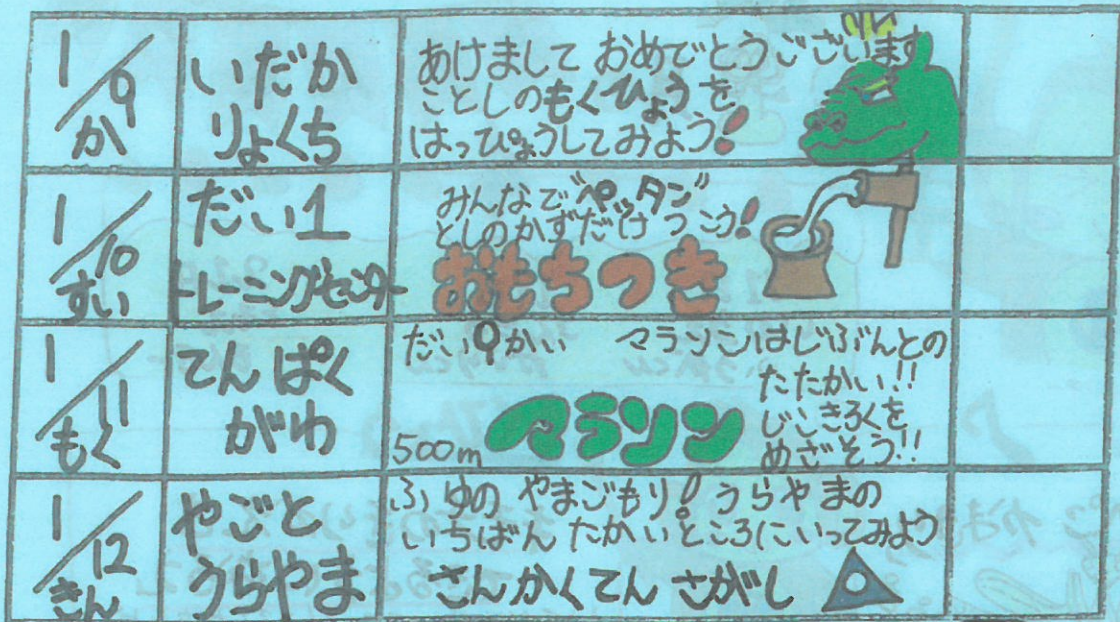 1/9
か
いだか
りょくち
あけまして おめでとうございます
ことしのもくひょうを
はっぴょうしてみよう!
1/10
すい
だい1
トレーニングセンター
みんなで"ペッタン"
としのかずだけつこう!
おもちつき
1/11
もく
てんぱく
がわ
だい9かい マラソンはじぶんとの
たたかい!!
じこきろくを
めざそう!!
500m マラソン
1/12
きん
やごと
うらやま
ふゆの やまごもり! うらやまの
いちばん たかいところにいってみよう
さんかくてん さがし